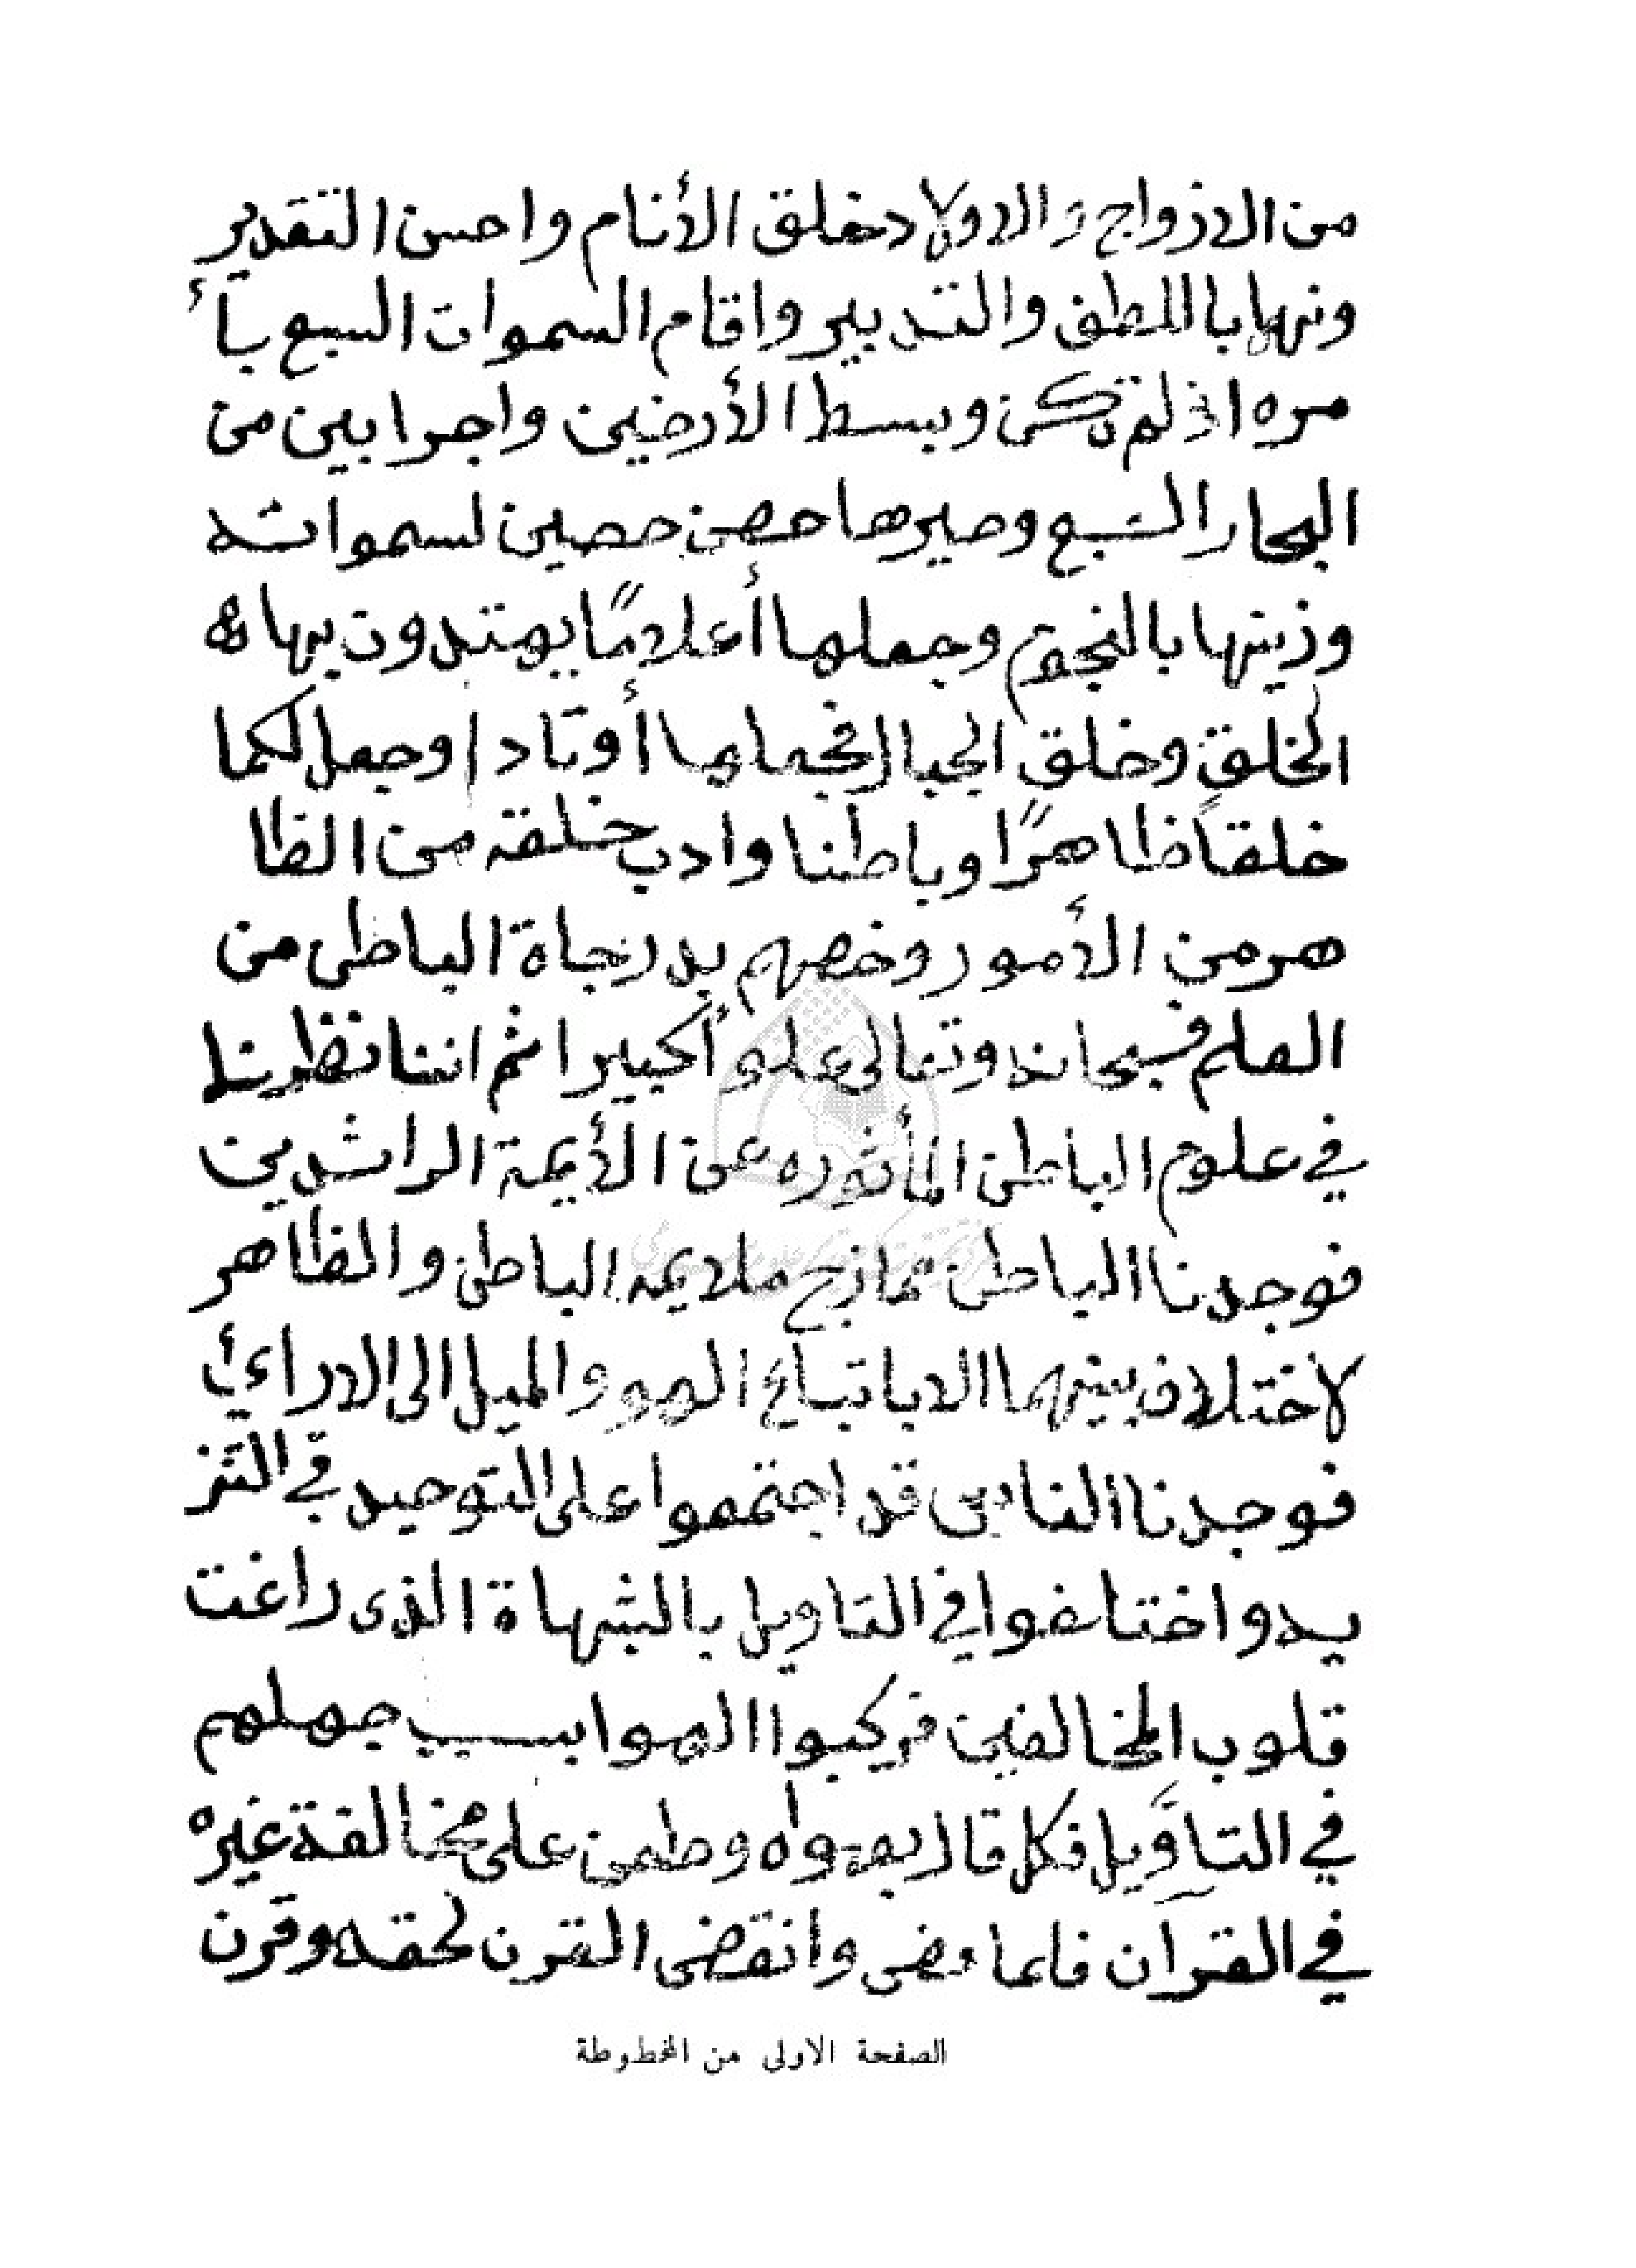 من الازواج والاولاد خلق الأنام واحسن التقدير
ونهاها باللطف والتدبير واقام السموات السبع بأ
مره اذ لم تكن وبسط الأرضين واجرا بين من
البحار السبع وصيرها حصن حصين لسمواته
وزينها بالنجوم وجعلها أعلامًا يهتدون بها
الخلق وخلق الجبال فجعلها أوتادا وجعل لكما
خلقاً ظاهرًا وباطنا وادب خلقة من الظا
هر من الأمور وخصهم بدرجاة الباطن من
العلم فسبحانه وتعالى علوأ كبيرا ثم اننا نظرنا
في علوم الباطن المأثوره عن الأيمة الراشدين
فوجدنا الباطن تمازج ملايمه الباطن والظاهر
لاختلاف بينهما الا باتباع الهوو والميل الى الاراء
فوجدنا الناس قد اجتمعوا على التوحيد في التنز
يد واختلفوا في التاويل بالشبهاة الذى راغت
قلوب المخالفين فركبوا الهوا بسبب جهلهم
في التاويل فكل قال بهواه وطعن على مخالفة غيره
في القرآن فلما مضى وانقضى القرن لحقه وقرن
الصفحة الاولى من المخطوطة